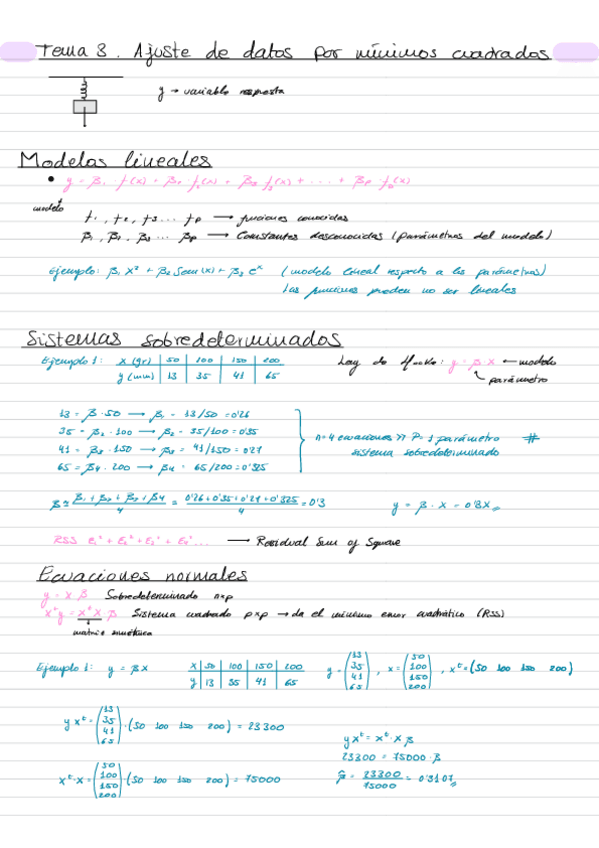 Tema 3. Ajuste de datos por mínimos cuadrados
y → variable respuesta
Modelos lineales
• y = β₁ · f₁(x) + β₂ · f₂(x) + β₃ f₃(x) + .... + βp · fp(x)
modelo
f₁, f₂, f₃ ... fp → funciones conocidas
β₁, β₂, β₃ ... βp → Constantes desconocidas (parámetros del modelo)
Ejemplo: β₁ x² + β₂ Sem(x) + β₃ eˣ (modelo lineal respecto a los parámetros)
las funciones pueden no ser lineales
Sistemas sobredeterminados
Ejemplo 1: x (gr) | 50 | 100 | 150 | 200
y (mm) | 13 | 35 | 41 | 65
Ley de Hooke: y = β · x ← modelo
parámetro
13 = β · 50 → β₁ = 13/50 = 0'26
35 = β₂ · 100 → β₂ = 35/100 = 0'35
41 = β₃ · 150 → β₃ = 41/150 = 0'27
65 = β₄ · 200 → β₄ = 65/200 = 0'325
n = 4 ecuaciones >> P = 1 parámetro #
sistema sobredeterminado
β ≈ (β₁ + β₂ + β₃ + β₄)/4 = (0'26 + 0'35 + 0'27 + 0'325)/4 = 0'3 y = β · x = 0'3x
RSS E₁² + E₂² + E₃² + E₄² ... → Residual Sum of Square
Ecuaciones normales
y = x β Sobredeterminado n×p
xᵗy = xᵗ x β Sistema cuadrado p×p → da el mínimo error cuadrático (RSS)
matriz simétrica
Ejemplo 1: y = βx
x | 50 | 100 | 150 | 200
y | 13 | 35 | 41 | 65
y = (13 35 41 65), x = (50 100 150 200), xᵗ = (50 100 150 200)
y xᵗ = (13 35 41 65) · (50 100 150 200) = 23300
xᵗ · x = (50 100 150 200) · (50 100 150 200) = 75000
y xᵗ = xᵗ · x β
23300 = 75000 · β
β̂ = 23300/75000 = 0'3107